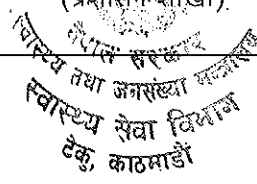 (प्रशासन शाखा)
नेपाल सरकार
स्वास्थ्य तथा जनसंख्या मन्त्रालय
स्वास्थ्य सेवा विभाग
टेकु, काठमाडौं